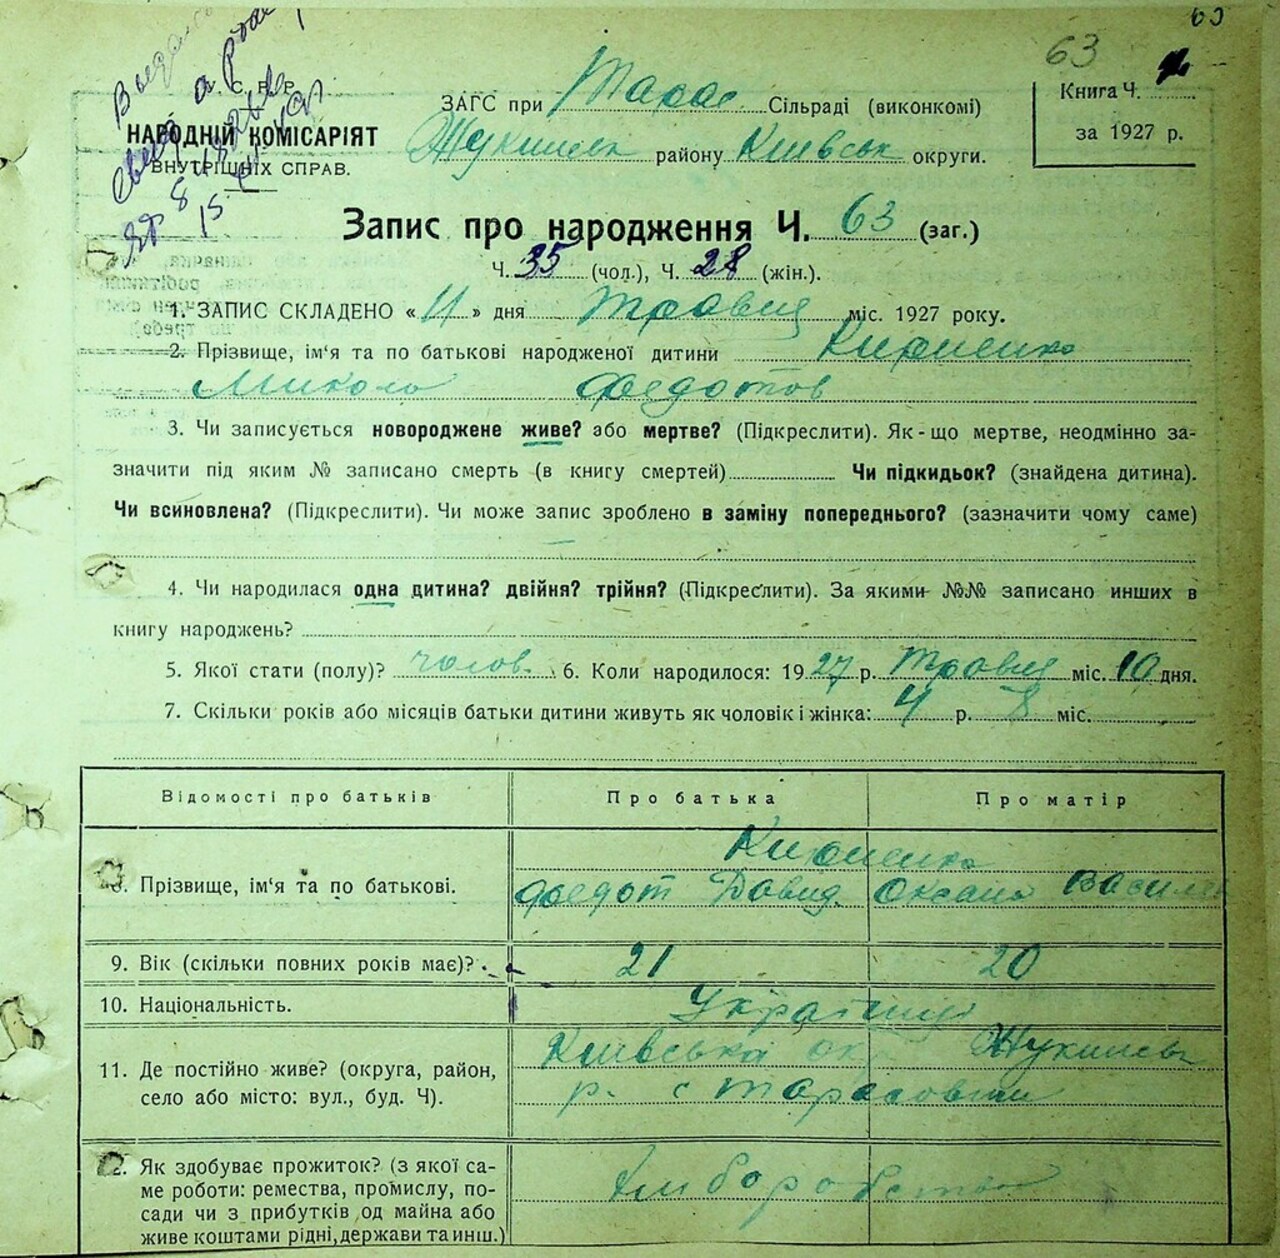 63
63
У. С. Р. Р.
НАРОДНІЙ КОМІСАРІЯТ
ВНУТРІШНІХ СПРАВ.
ЗАГС при Тарас Сільраді (виконкомі)
Жукинськ району Київськ округи.
Книга Ч.
за 1927 р.
Запис про народження Ч. 63 (заг.)
Ч. 35 (чол.), Ч. 28 (жін.).
1. ЗАПИС СКЛАДЕНО « 11 » дня Травня міс. 1927 року.
2. Прізвище, ім‘я та по батькові народженої дитини Кириенко
Микола Федотов
3. Чи записується новороджене живе? або мертве? (Підкреслити). Як-що мертве, неодмінно за-
значити під яким № записано смерть (в книгу смертей) Чи підкидьок? (знайдена дитина).
Чи всиновлена? (Підкреслити). Чи може запис зроблено в заміну попереднього? (зазначити чому саме)
4. Чи народилася одна дитина? двійня? трійня? (Підкреслити). За якими №№ записано инших в
книгу народжень?
5. Якої стати (полу)? чолов. 6. Коли народилося: 1927 р. Травня міс. 10 дня.
7. Скільки років або місяців батьки дитини живуть як чоловік і жінка: 4 р. 8 міс.
Відомості про батьків Про батька Про матір
Кириенко
8. Прізвище, ім‘я та по батькові. Федот Давид. Оксана Василь
9. Вік (скільки повних років має)? 21 20
10. Національність. Українці
Київська окр Жукинськ
11. Де постійно живе? (округа, район, р. с Тарасовичі
село або місто: вул., буд. Ч).
12. Як здобуває прожиток? (з якої са- Хліборобство
ме роботи: ремества, промислу, по-
сади чи з прибутків од майна або
живе коштами рідні, держави та инш.)